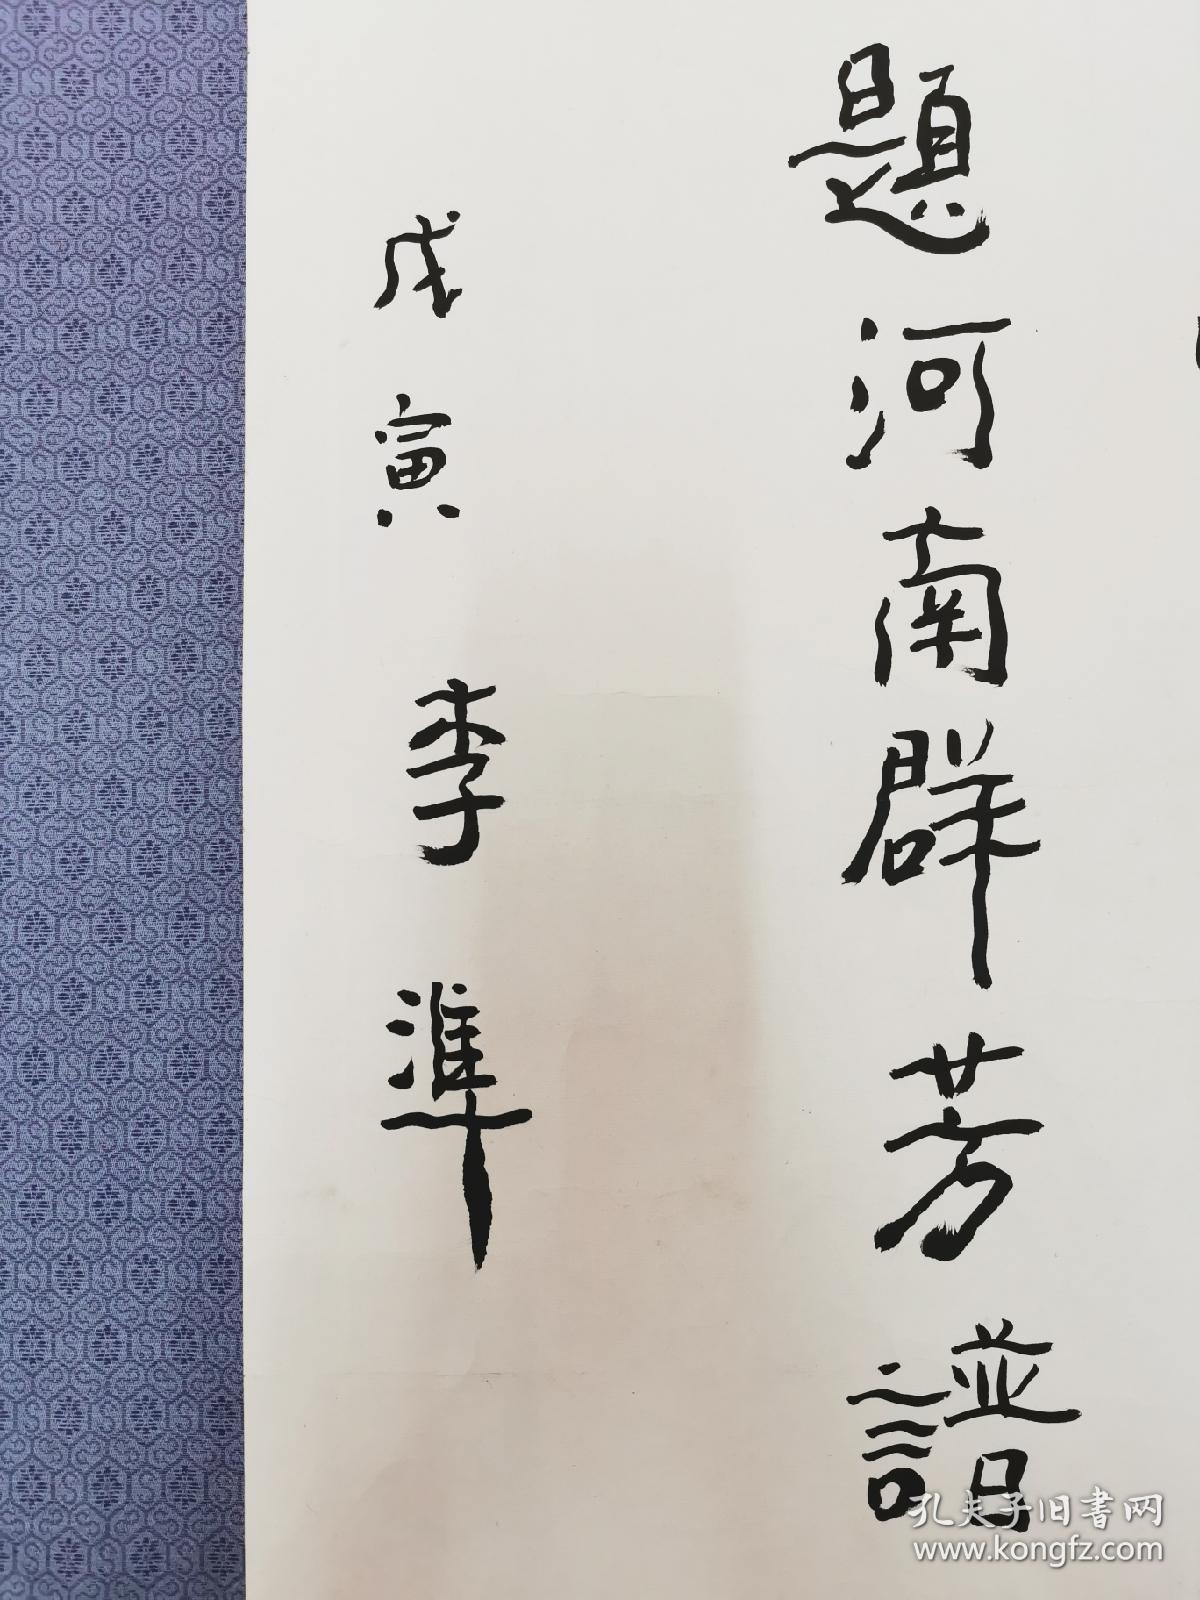 題河南群芳譜
戊寅 李準
孔夫子旧書网
www.kongfz.com